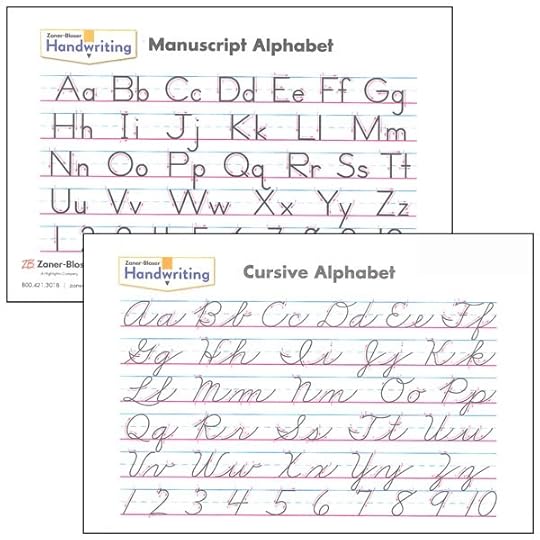 Zaner-Bloser
Handwriting
Manuscript Alphabet
Aa Bb Cc Dd Ee Ff Gg
Hh Ii Jj Kk Ll Mm
Nn Oo Pp Qq Rr Ss Tt
Uu Vv Ww Xx Yy Zz
ZB Zaner-Blos
A Highlights Company
800.421.3018 |
Zaner-Bloser
Handwriting
Cursive Alphabet
Aa Bb Cc Dd Ee Ff
Gg Hh Ii Jj Kk
Ll Mm Nn Oo Pp
Qq Rr Ss Tt Uu
Vv Ww Xx Yy Zz
1 2 3 4 5 6 7 8 9 10